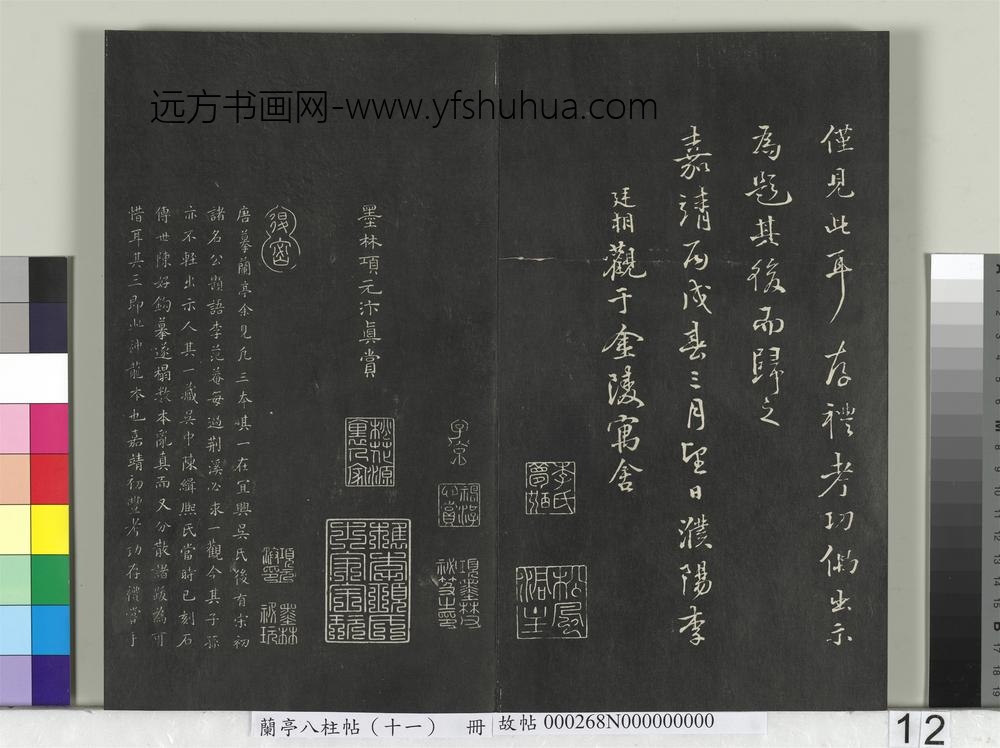 远方书画网-www.yfshuhua.com
僅見此耳存禮考功偶出示
為題其後而歸之
嘉靖丙戌春三月望日濮陽李
廷相觀于金陵寓舍
李氏夢弼
松風淵主
子京
項墨林父祕笈之印
墨林項元汴真賞
唐摹蘭亭余見凡三本其一在宜興吳氏後有宋初
諸名公題語李范菴每過荆溪必求一觀今其子孫
亦不輕出示人其一藏吳中陳緝熙氏當時已刻石
傳世陳好鈎摹遂搨數本亂真而又分散諸跋為可
惜耳其三即此神龍本也嘉靖初豐考功存禮嘗手
蘭亭八柱帖（十一）　冊
故帖 000268N000000000
12